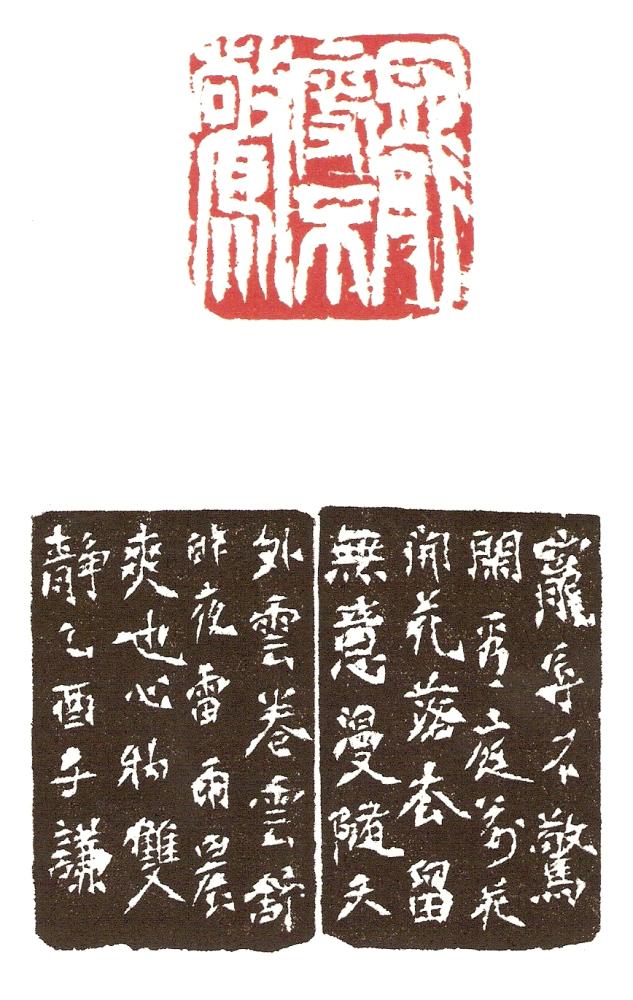 寵
辱不
驚
寵辱不驚
閑看庭前花
開花落去留
無意漫隨天
外雲卷雲舒
昨夜雷雨晨
爽也心物雙
靜乙酉子謙